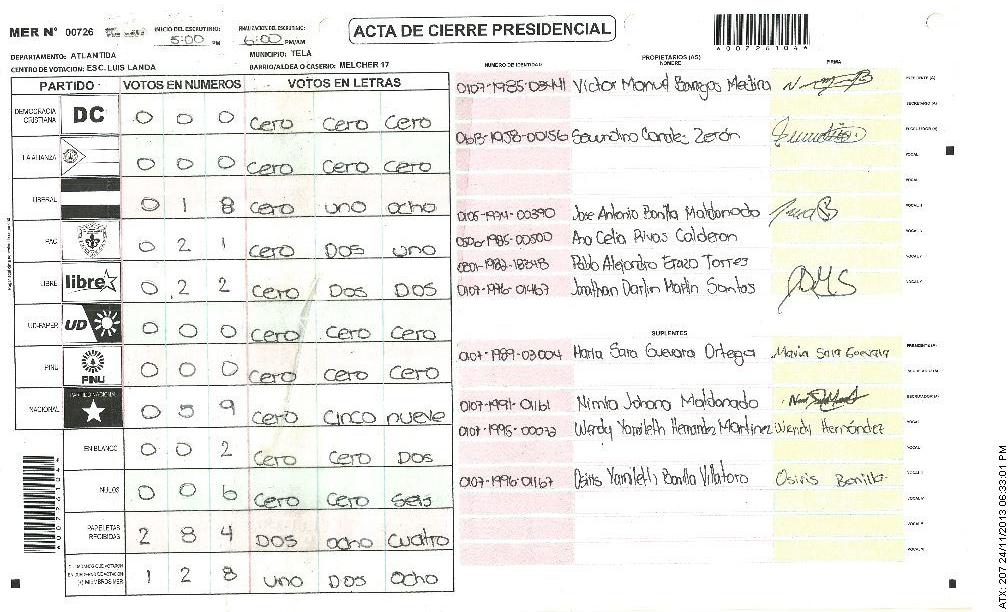 MER N° 00726
INICIO DEL ESCRUTINIO: 5:00 PM
FINALIZACION DEL ESCRUTINIO: 6:00 PM/AM
ACTA DE CIERRE PRESIDENCIAL
*00726104*
DEPARTAMENTO: ATLANTIDA
MUNICIPIO: TELA
CENTRO DE VOTACION: ESC. LUIS LANDA
BARRIO/ALDEA O CASERIO: MELCHER 17
PARTIDO VOTOS EN NUMEROS VOTOS EN LETRAS
DEMOCRACIA CRISTIANA DC 0 0 0 Cero Cero Cero
LA ALIANZA 0 0 0 Cero Cero Cero
LIBERAL 0 1 8 Cero uno ocho
PAC 0 2 1 Cero DOS uno
LIBRE libre 0 2 2 Cero DOS DOS
UD-FAPER UD 0 0 0 Cero Cero Cero
PINU PINU 0 0 0 Cero Cero Cero
NACIONAL PARTIDO NACIONAL 0 5 9 Cero Cinco nueve
EN BLANCO 0 0 2 Cero Cero DOS
NULOS 0 0 6 Cero Cero Seis
PAPELETAS RECIBIDAS 2 8 4 DOS ocho cuatro
1 2 8 uno DOS Ocho
*00726104*
PROPIETARIOS (AS)
NUMERO DE IDENTIDAD NOMBRE FIRMA
0107-1985-03441 Victor Manuel Barrgos Medina PRESIDENTE (A)
SECRETARIO (A)
Zerón ESCRUTADOR (A)
VOCAL
VOCAL
0105-1974-00390 Jose Antonio Bonilla Maldonado VOCAL
0506-1985-00500 Ana Celia Rivas Calderon VOCAL
0801-1982-18348 Pablo Alejandro Erazo Torres VOCAL
0107-1996-01467 Jonathan Darlin Martin Santos VOCAL
SUPLENTES
0107-1989-03004 Maria Sara Guevara Ortega Maria Sara Guevara PRESIDENTE (A)
SECRETARIO (A)
0107-1991-01161 Nimia Johana Maldonado ESCRUTADOR (A)
Wendy Yamileth Hernandez Martinez Wendy Hernández VOCAL
VOCAL
0107-1996-01167 Osiris Yamileth Bonilla Villatoro Osiris Bonilla VOCAL
VOCAL
VOCAL
VOCAL
ATX: 207 24/11/2013 06:33:01 PM